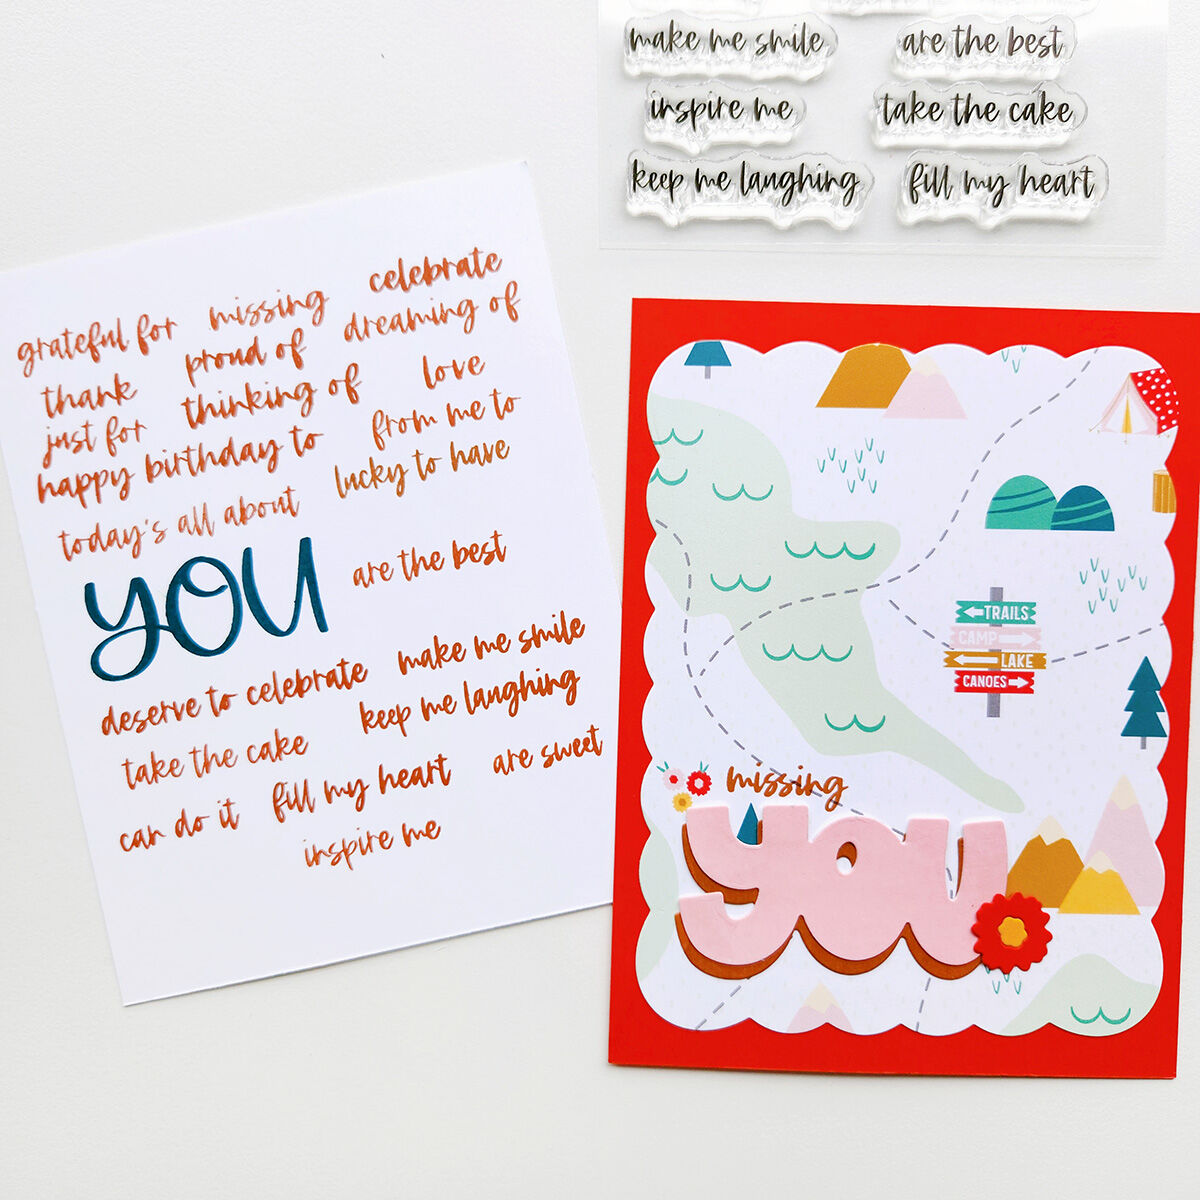 make me smile
are the best
inspire me
take the cake
keep me laughing
fill my heart
grateful for
missing
celebrate
thank
proud of
dreaming of
just for
thinking of
love
happy birthday to
from me to
today's all about
lucky to have
YOU
are the best
deserve to celebrate
make me smile
take the cake
keep me laughing
can do it
fill my heart
are sweet
inspire me
TRAILS
CAMP
LAKE
CANOES
missing
you